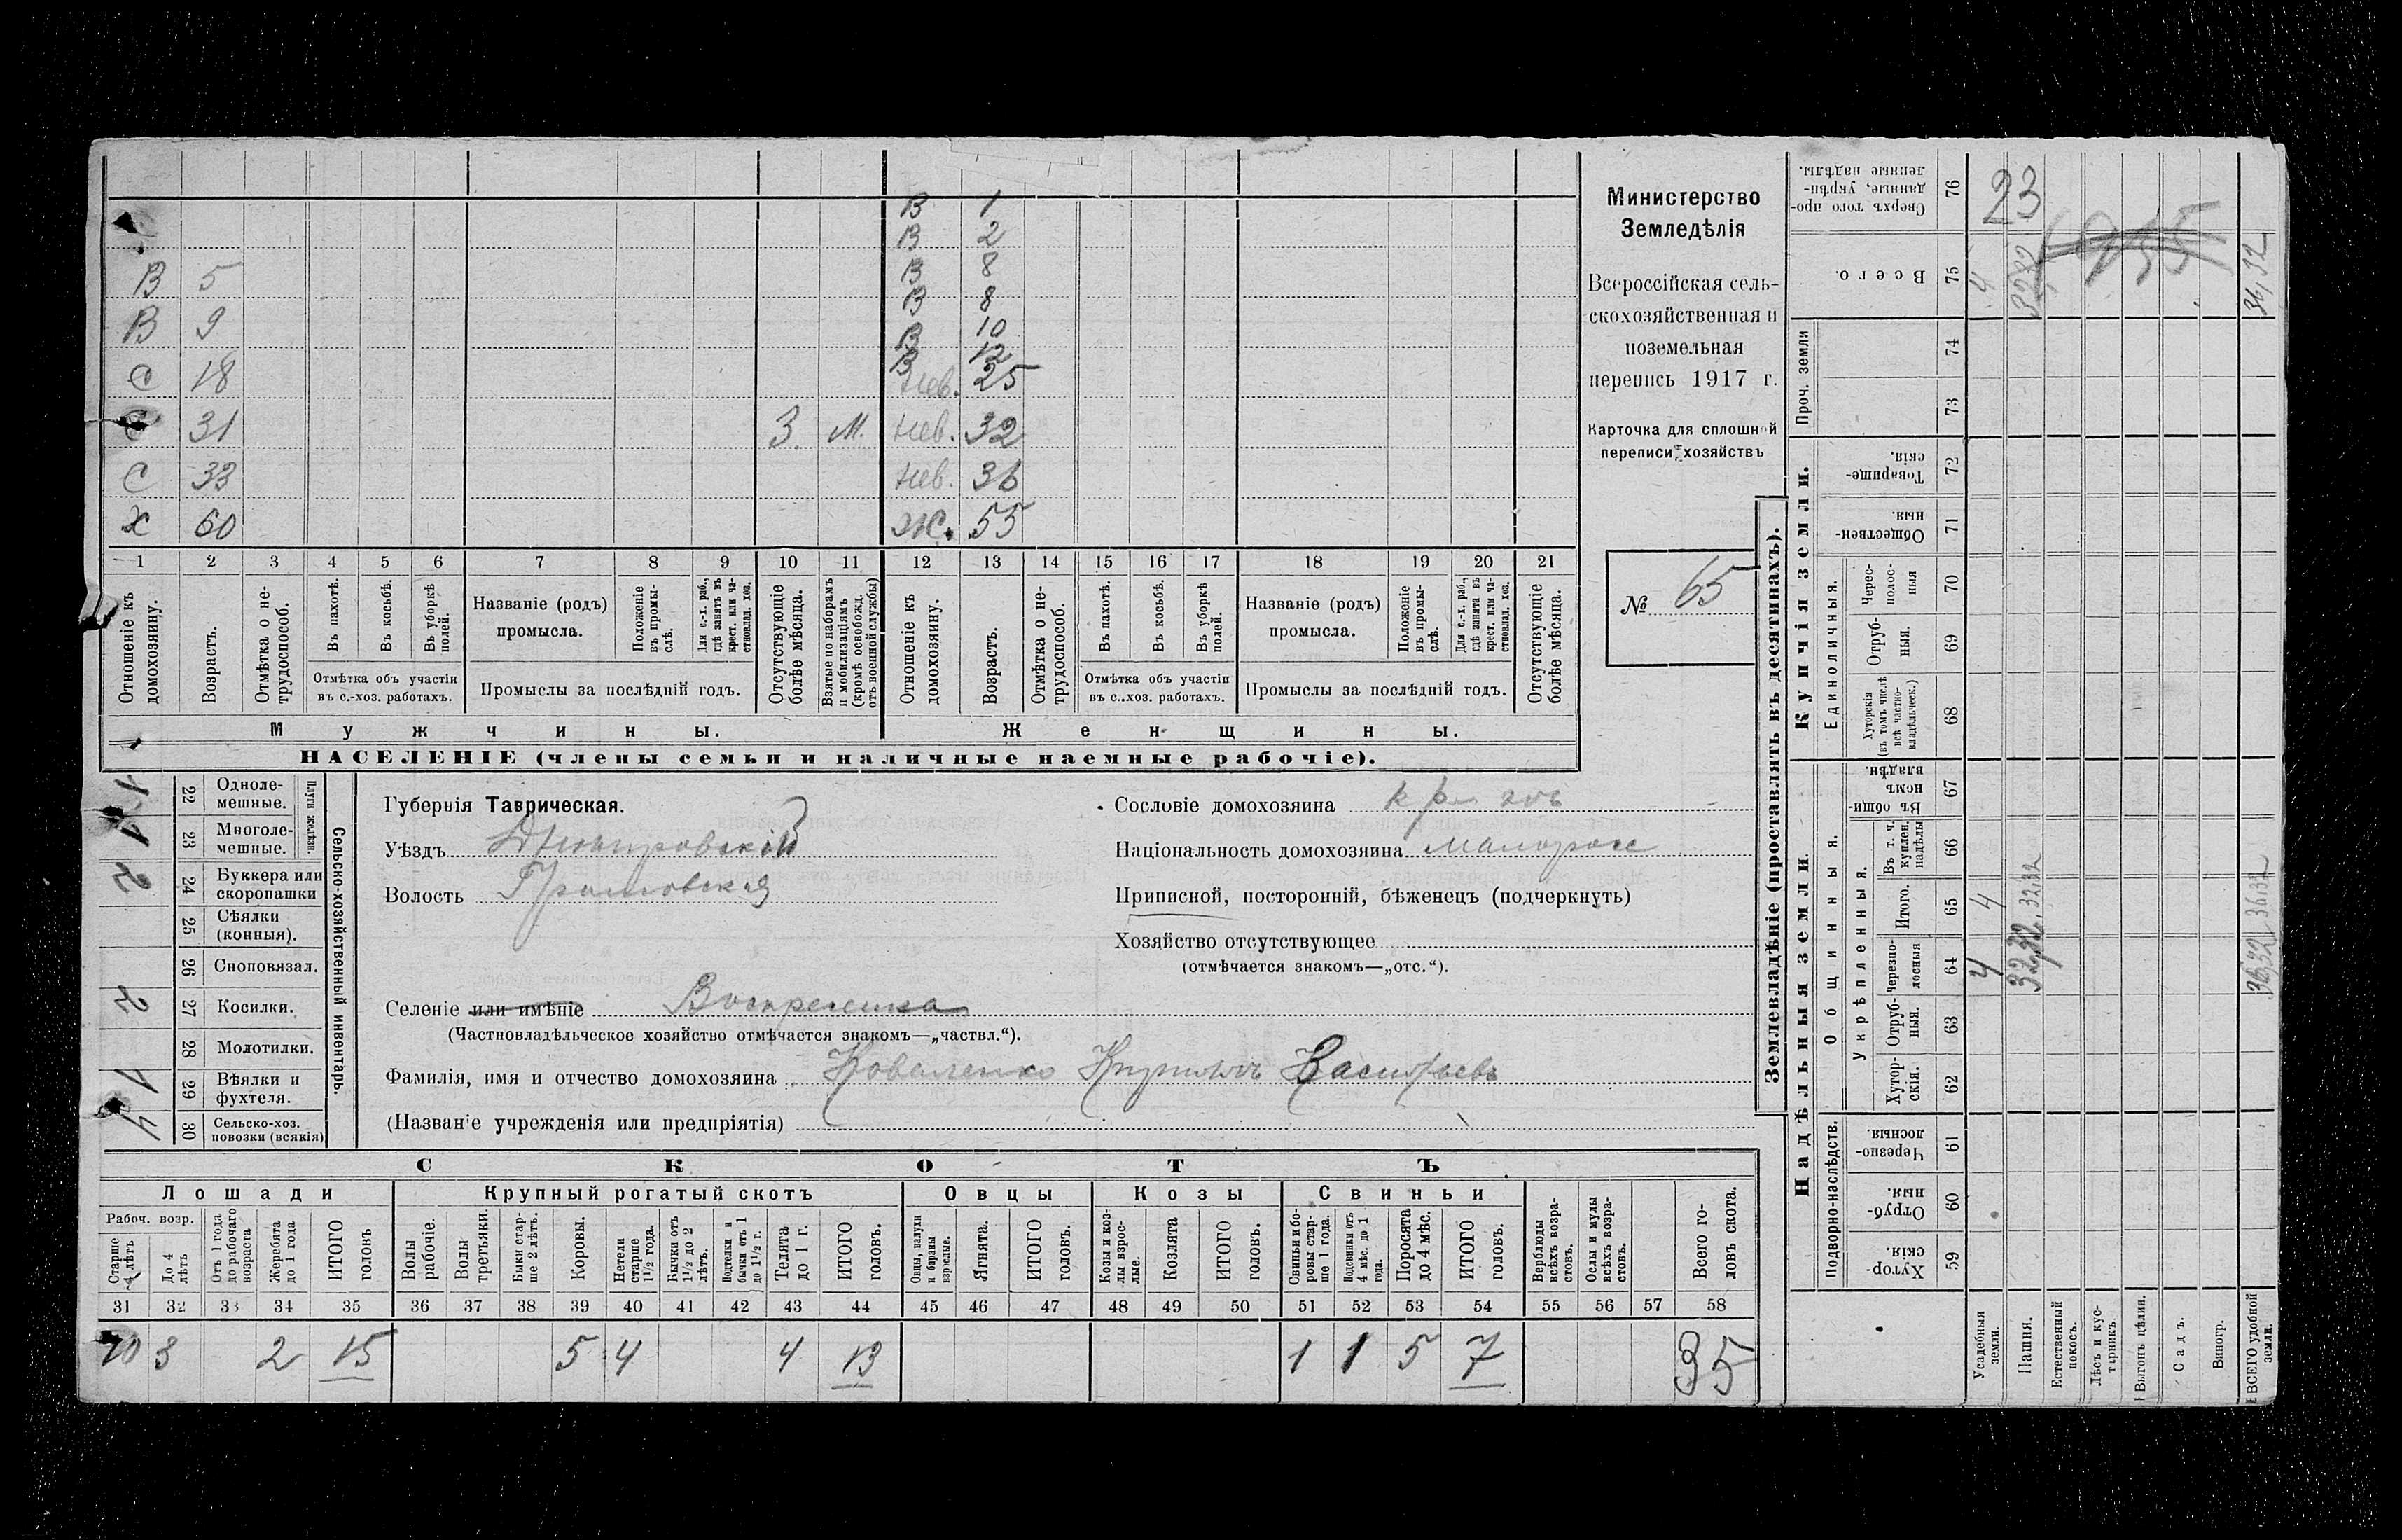 В 1
В 2
В 5 В 8
В 8
В 9 В 10
В 12
С 18 нев. 25
С 31 3 м. нев. 32
С 33 нев. 36
Х 60 ж. 55
1 2 3 4 5 6 7 8 9 10 11 12 13 14 15 16 17 18 19 20 21
Отношеніе къ домохозяину.
Возрастъ.
Отмѣтка о не-
трудоспособ.
Въ пахотѣ.
Въ косьбѣ.
Въ уборкѣ
полей.
Отмѣтка объ участіи
въ с.-хоз. работахъ.
Названіе (родъ)
промысла.
Положеніе
въ промы-
слѣ.
Для с.-х. раб.,
гдѣ занятъ въ
крест. или ча-
стновлад. хоз.
Промыслы за послѣдній годъ.
Отсутствующіе
болѣе мѣсяца.
Взятые по наборамъ
и мобилизаціямъ
(кромѣ освобожд.
отъ военной службы)
Отношеніе къ
домохозяину.
Возрастъ.
Отмѣтка о не-
трудоспособ.
Въ пахотѣ.
Въ косьбѣ.
Въ уборкѣ
полей.
Отмѣтка объ участіи
въ с.-хоз. работахъ.
Названіе (родъ)
промысла.
Положеніе
въ промы-
слѣ.
Для с.-х. раб.,
гдѣ занята въ
крест. или ча-
стновлад. хоз.
Промыслы за послѣдній годъ.
Отсутствующіе
болѣе мѣсяца.
Мужчины. Женщины.
НАСЕЛЕНІЕ (члены семьи и наличные наемные рабочіе).
Министерство
Земледѣлія
Всероссійская сель-
скохозяйственная и
поземельная
перепись 1917 г.
Карточка для сплошной
переписи хозяйствъ
№ 65
Сельско-хозяйственный инвентарь.
Плуги желѣзн.
1 22 Одноле-
мешные.
1 23 Многоле-
мешные.
2 24 Буккера или
скоропашки
25 Сѣялки
(конныя).
26 Сноповязал.
2 27 Косилки.
28 Молотилки.
1 29 Вѣялки и
фухтеля.
4 30 Сельско-хоз.
повозки (всякія)
Губернія Таврическая.
Уѣздъ Днѣпровскій
Волость
Селеніе или имѣніе Воскресенка
(Частновладѣльческое хозяйство отмѣчается знакомъ—„частвл.“).
Фамилія, имя и отчество домохозяина Коваленко Кириллъ Васильевъ
(Названіе учрежденія или предпріятія)
Сословіе домохозяина
Національность домохозяина малоросс
Приписной, посторонній, бѣженецъ (подчеркнуть)
Хозяйство отсутствующее
(отмѣчается знакомъ—„отс.“).
СКОТЪ
Лошади Крупный рогатый скотъ Овцы Козы Свиньи
Рабоч. возр.
Старше
4 лѣтъ
До 4
лѣтъ
Отъ 1 года
до рабочаго
возраста
Жеребята
до 1 года
ИТОГО
головъ
Волы
рабочіе.
Волы
третьяки.
Быки стар-
ше 2 лѣтъ.
Коровы.
Нетели
старше
1½ года.
Бычки отъ
1½ до 2
лѣтъ.
Подтелки и
бычки отъ 1
до 1½ г.
Телята
до 1 г.
ИТОГО
головъ.
Овцы, валухи
и бараны
взрослые.
Ягнята.
ИТОГО
головъ.
Козы и коз-
лы взрос-
лые.
Козлята
ИТОГО
головъ.
Свиньи и бо-
ровы стар-
ше 1 года.
Подсвинки отъ
4 мѣс. до 1
года.
Поросята
до 4 мѣс.
ИТОГО
головъ.
Верблюды
всѣхъ возра-
стовъ.
Ослы и мулы
всѣхъ возра-
стовъ.
Всего го-
ловъ скота.
31 32 33 34 35 36 37 38 39 40 41 42 43 44 45 46 47 48 49 50 51 52 53 54 55 56 57 58
10 3 2 15 5 4 4 13 1 1 5 7 35
Землевладѣніе (проставлять въ десятинахъ).
Надѣльныя земли. Купчія земли.
Подворно-наслѣдств.
Общинныя.
Укрѣпленныя.
Единоличныя.
Проч. земли
Хутор-
скія. 59
Отруб-
ныя. 60
Черезпо-
лосныя. 61
Хутор-
скія. 62
Отруб-
ныя. 63
Черезпо-
лосныя 64
Итого. 65
Въ т. ч.
куплен.
надѣлы 66
Въ общин-
номъ
владѣн. 67
Хуторскія
(въ томъ числѣ
всѣ частно-
владѣльческ.) 68
Отруб-
ныя. 69
Черес-
полос-
ныя 70
Обществен-
ныя. 71
Товарище-
скія. 72
73
74
Всего. 75
Сверхъ того про-
данные, укрѣп-
ленные надѣлы. 76
Усадебныя
земли. 4 4 4 23
Пашня. 32,32 32,32 32,32
Естественный
покосъ.
Лѣсъ и кус-
тарникъ.
Выгонъ цѣлин.
Садъ.
Виногр.
ВСЕГО удобной
земли. 36,32 36,32 36,32